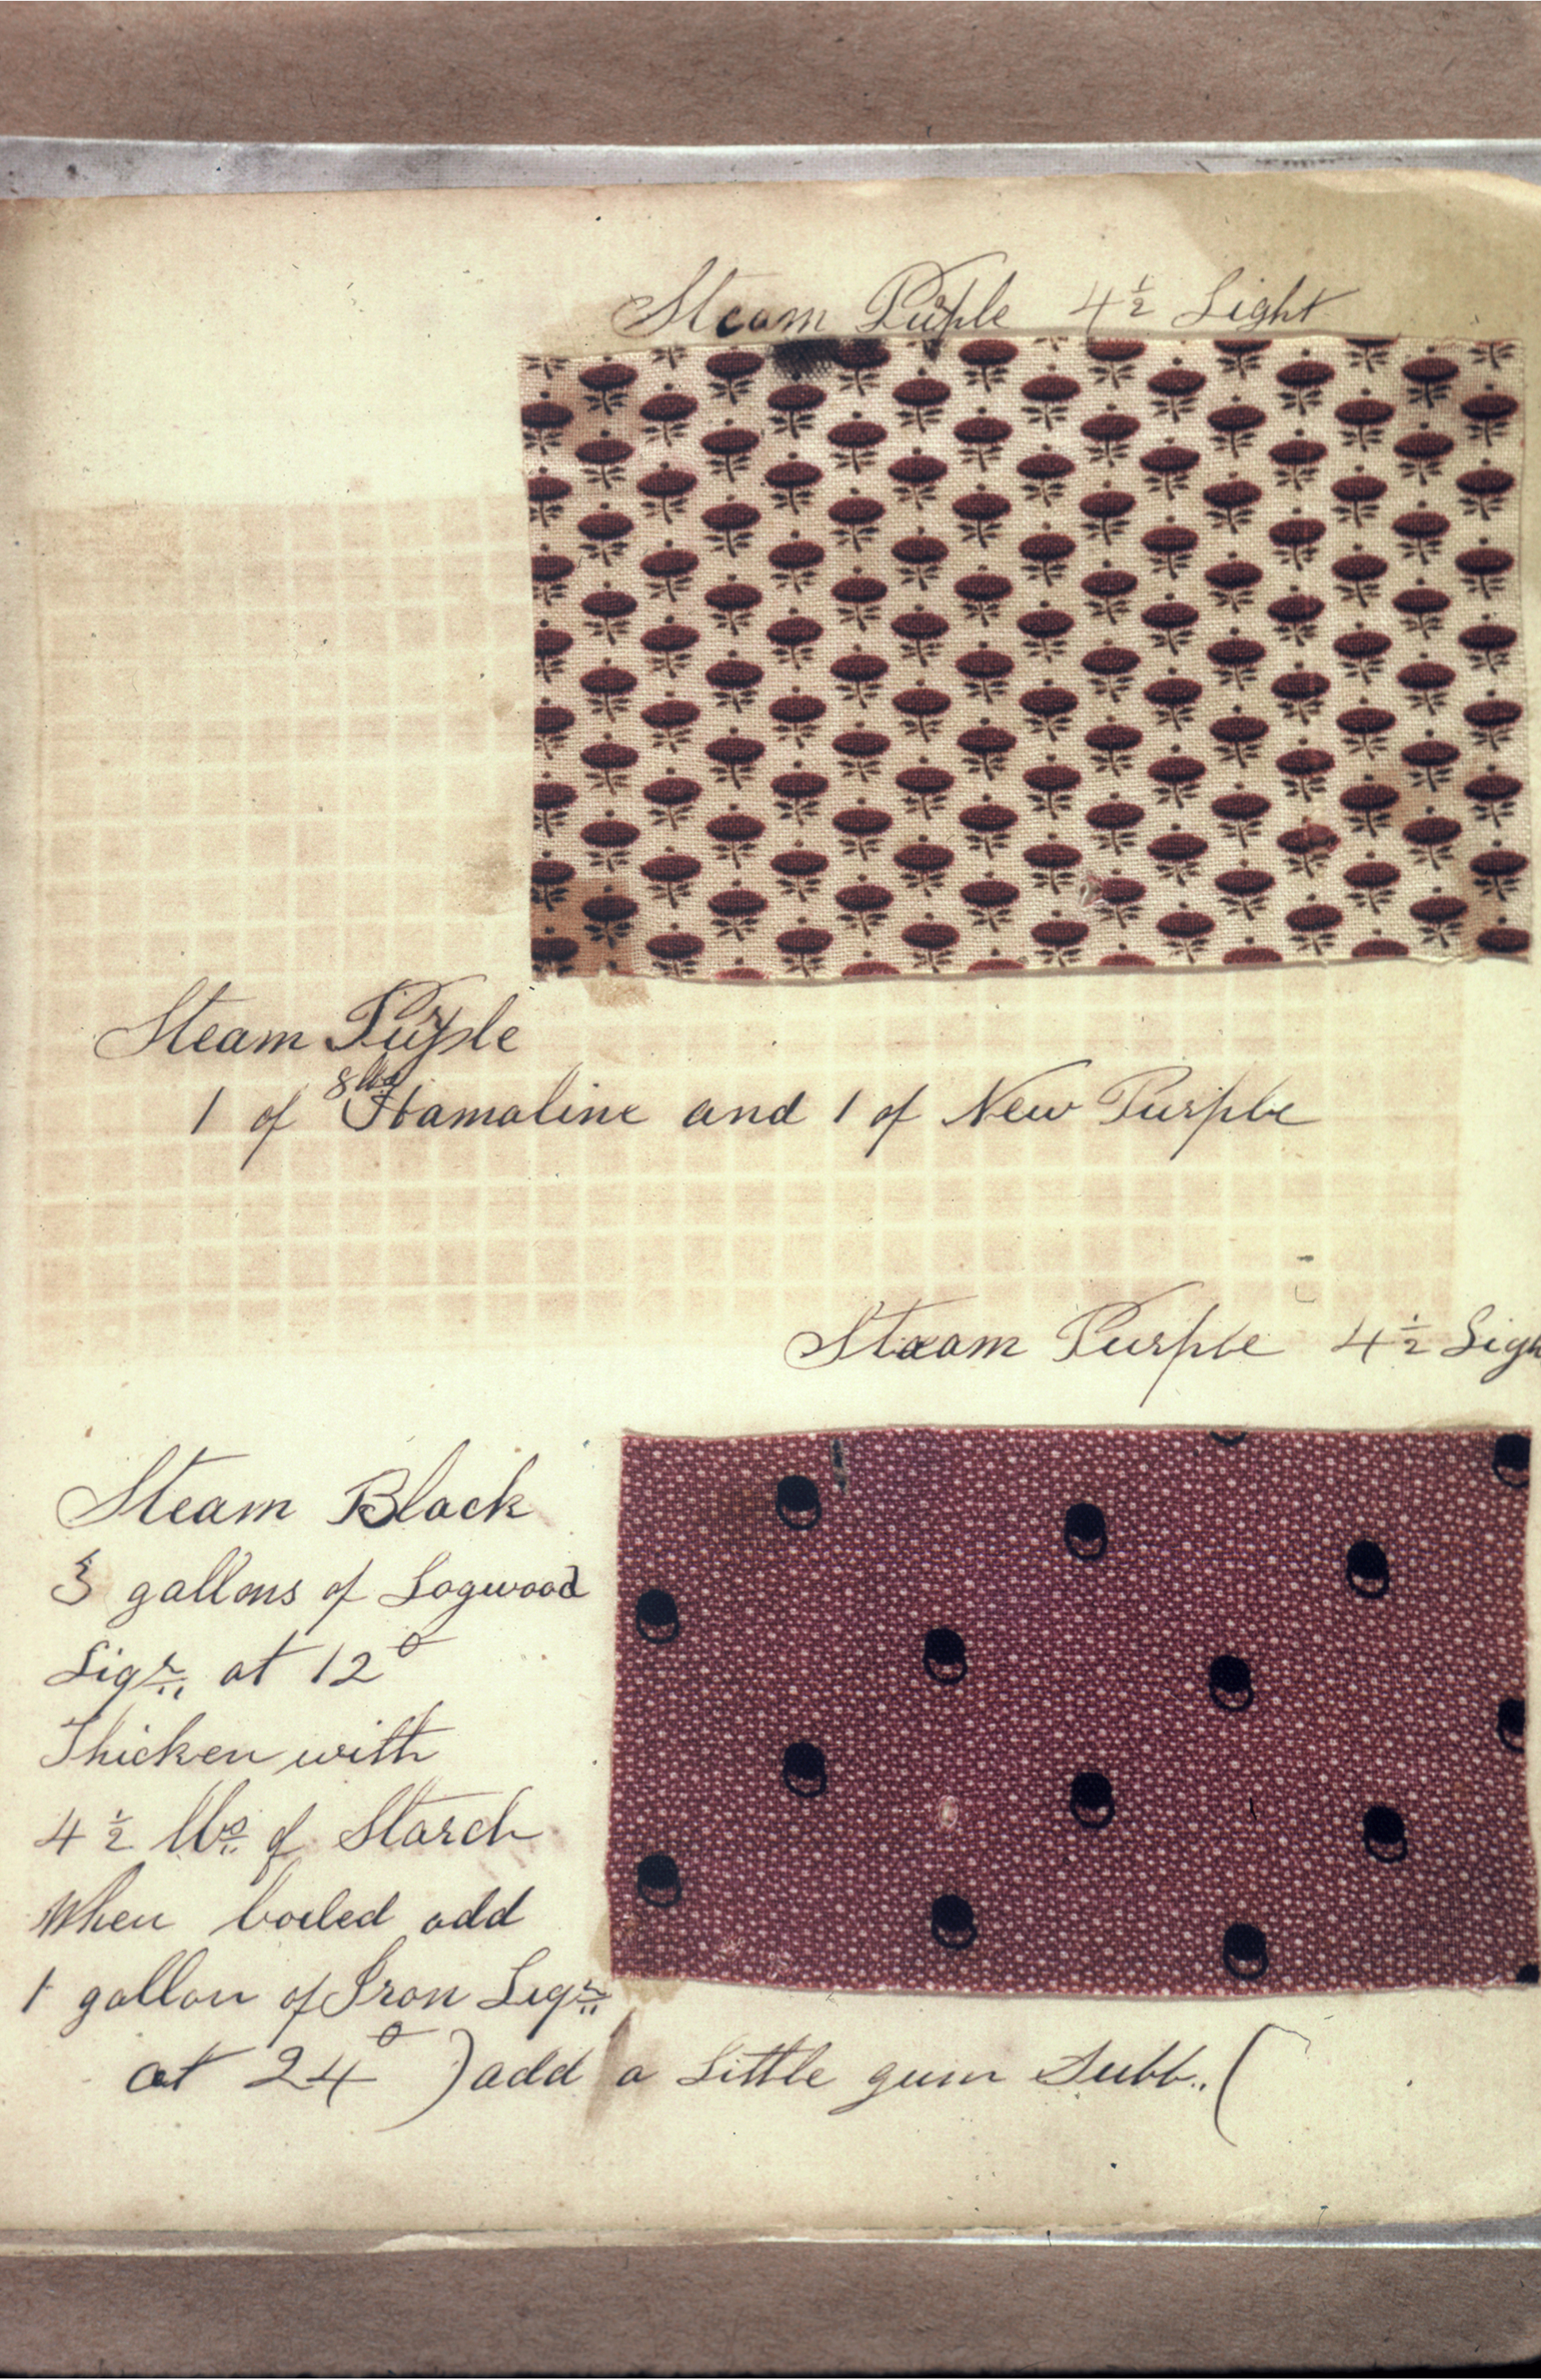 Steam Purple 4½ Light
Steam Purple
8 lbs
1 of Hamaline and 1 of New Purple
Steam Purple 4½ Ligh
Steam Black
3 gallons of Logwood
Liqr. at 12°
Thicken with
4½ lbs. of Starch
When boiled add
1 gallon of Iron Liqr.
at 24° ) add a Little gum Subb.. (